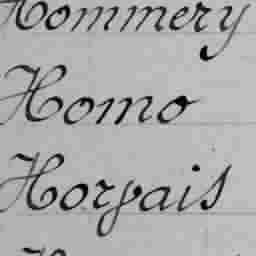 Hommery
Homo
Horpais